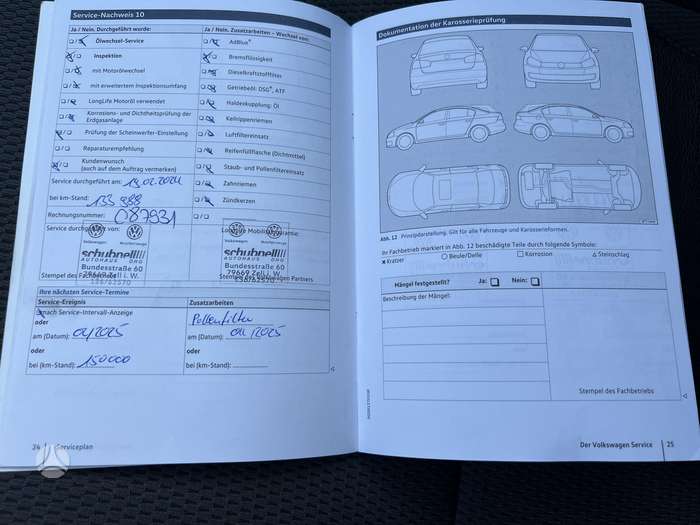 Service-Nachweis 10
Ja / Nein. Durchgeführt wurde:
Ölwechsel-Service
Inspektion
mit Motorölwechsel
mit erweitertem Inspektionsumfang
LongLife Motoröl verwendet
Korrosions- und Dichtheitsprüfung der
Erdgasanlage
Prüfung der Scheinwerfer-Einstellung
Reparaturempfehlung
Kundenwunsch
(auch auf dem Auftrag vermerken)
Service durchgeführt am: 19.02.2024
bei km-Stand: 135 988
Rechnungsnummer: 087931
Service durchgeführt von:
Volkswagen
Nutzfahrzeuge
schubnell
AUTOHAUS OHG
Bundesstraße 60
79669 Zell i. W.
Stempel des Fachbetriebs
Ja / Nein. Zusatzarbeiten – Wechsel von:
AdBlue®
Bremsflüssigkeit
Dieselkraftstofffilter
Getriebeöl: DSG®, ATF
Haldexkupplung: Öl
Keilrippenriemen
Luftfiltereinsatz
Reifenfüllflasche (Dichtmittel)
Staub- und Pollenfiltereinsatz
Zahnriemen
Zündkerzen
LongLife Mobilitätsgarantie:
Volkswagen
Nutzfahrzeuge
schubnell
AUTOHAUS OHG
Bundesstraße 60
79669 Zell i. W.
Stempel des Volkswagen Partners
Ihre nächsten Service-Termine
Service-Ereignis
nach Service-Intervall-Anzeige
oder
am (Datum): 04/2025
oder
bei (km-Stand): 150000
Zusatzarbeiten
Pollenfilter
am (Datum): 04/2025
oder
bei (km-Stand):
34
Serviceplan
Dokumentation der Karosserieprüfung
Abb. 12 Prinzipdarstellung. Gilt für alle Fahrzeuge und Karosserieformen.
Ihr Fachbetrieb markiert in Abb. 12 beschädigte Teile durch folgende Symbole:
x Kratzer
Beule/Delle
Korrosion
Steinschlag
Mängel festgestellt? Ja: Nein:
Beschreibung der Mängel:
Stempel des Fachbetriebs
Der Volkswagen Service 25